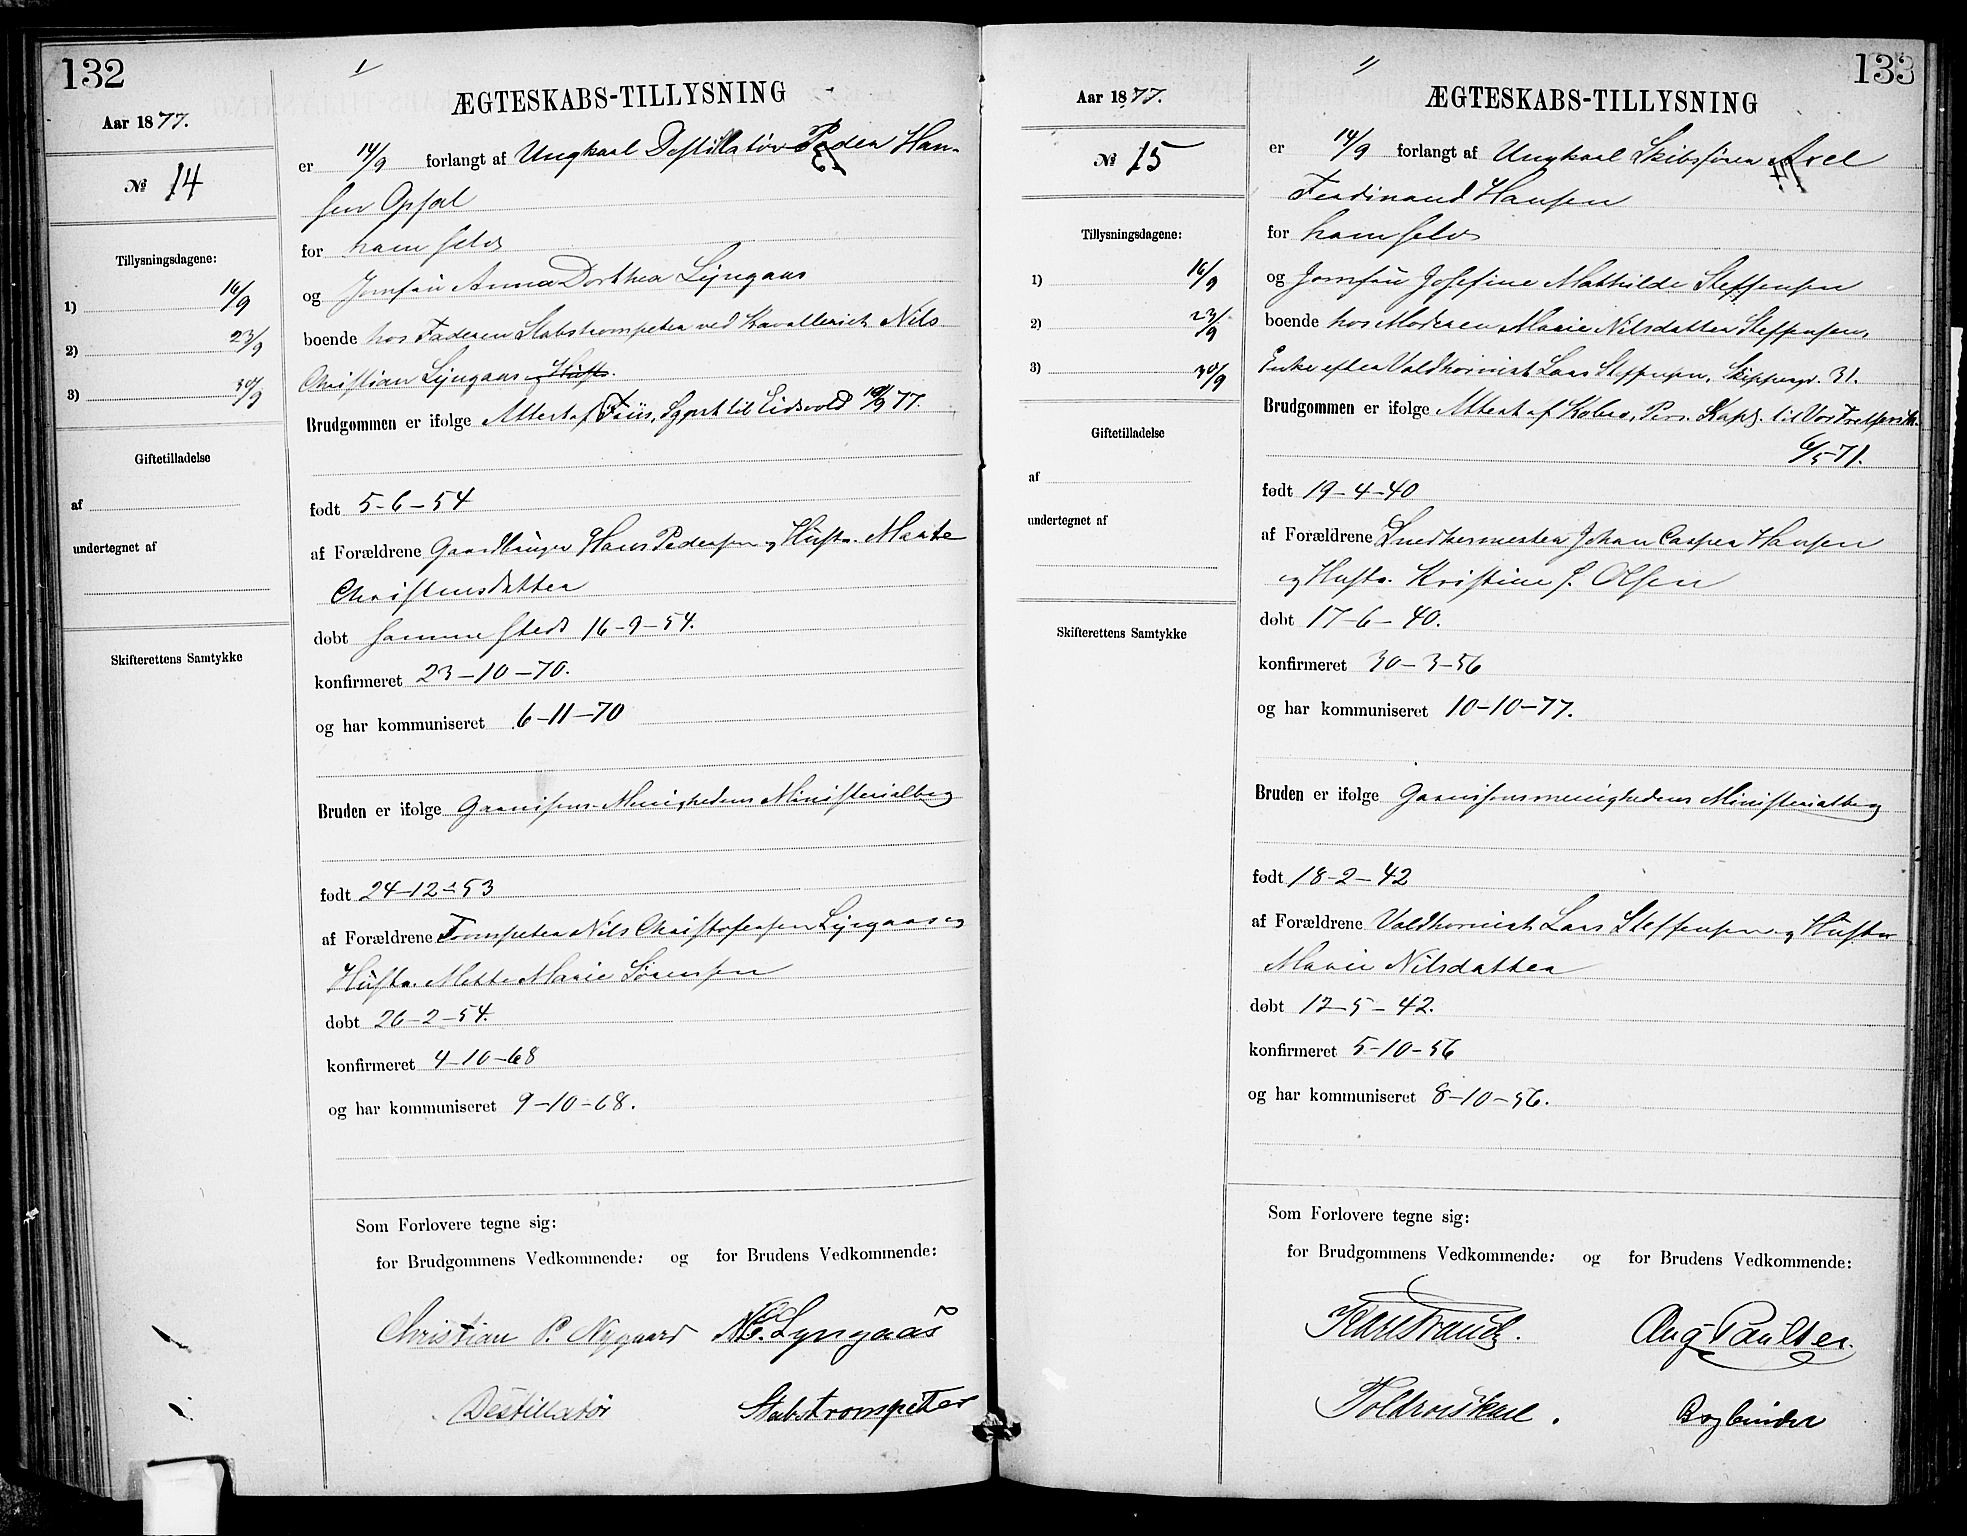 132
Aar 1877.
№ 14
Tillysningsdagene:
1) 16/9
2) 23/9
3) 30/9
Giftetilladelse
af
undertegnet af
Skifterettens Samtykke
ÆGTESKABS-TILLYSNING
er 14/9 forlangt af Ungkarl Destillatør Peder Han-
sen Opsal
for ham selv
og Jomfru Anna Dorthea Lyngaas
boende hos Faderen Stabstrompeter ved Kavalleriet Nils
Christian Lyngaas
Brudgommen er ifølge Attest af Sgpræst til Eidsvold 10/9 77.
født 5-6-54
af Forældrene Gaardbruger Hans Pedersen og Hustr. Marte
Christensdatter
døbt samme steds 16-9-54.
konfirmeret 23-10-70.
og har kommuniseret 6-11-70
Bruden er ifølge Garnisons-Menighedens Ministerialbog
født 24-12-53
af Forældrene Trompeter Nils Christofersen Lyngaas og
Hustr. Mette Marie Sørensen
døbt 26-2-54.
konfirmeret 4-10-68
og har kommuniseret 9-10-68.
Som Forlovere tegne sig:
for Brudgommens Vedkommende: og for Brudens Vedkommende:
Christian P. Nygaard N.C. Lyngaas
Destillatør Stabstrompeter
133
Aar 1877.
№ 15
Tillysningsdagene:
1) 16/9
2) 23/9
3) 30/9
Giftetilladelse
af
undertegnet af
Skifterettens Samtykke
ÆGTESKABS-TILLYSNING
er 14/9 forlangt af Ungkarl Skibsfører Axel
Ferdinand Hansen
for ham selv
og Jomfru Josefine Mathilde Steffensen
boende hos Moderen Marie Nilsdatter Steffensen,
Enke efter Valdhornist Lars Steffensen, Skippergd. 31.
Brudgommen er ifølge Attest af Koberg, Pers. Kapl. til Vor Frelsersk.
6/5 71.
født 19-4-40
af Forældrene Snedkermester Johan Casper Hansen
og Hustr. Kristine f. Olsen
døbt 17-6-40.
konfirmeret 30-3-56
og har kommuniseret 10-10-77.
Bruden er ifølge Garnisonsmenighedens Ministerialbog
født 18-2-42
af Forældrene Valdhornist Lars Steffensen og Hustr
Marie Nilsdatter
døbt 12-5-42.
konfirmeret 5-10-56
og har kommuniseret 8-10-56.
Som Forlovere tegne sig:
for Brudgommens Vedkommende: og for Brudens Vedkommende:
Aug Paulsen.
Bogbinder